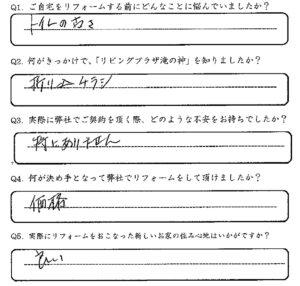 Q1. ご自宅をリフォームする前にどんなことに悩んでいましたか?
トイレの古さ
Q2. 何がきっかけで、「リビングプラザ滝の神」を知りましたか?
折り込チラシ
Q3. 実際に弊社でご契約を頂く際、どのような不安をお持ちでしたか?
特にありません
Q4. 何が決め手となって弊社でリフォームをして頂けましたか?
価格
Q5. 実際にリフォームをおこなった新しいお家の住み心地はいかがですか?